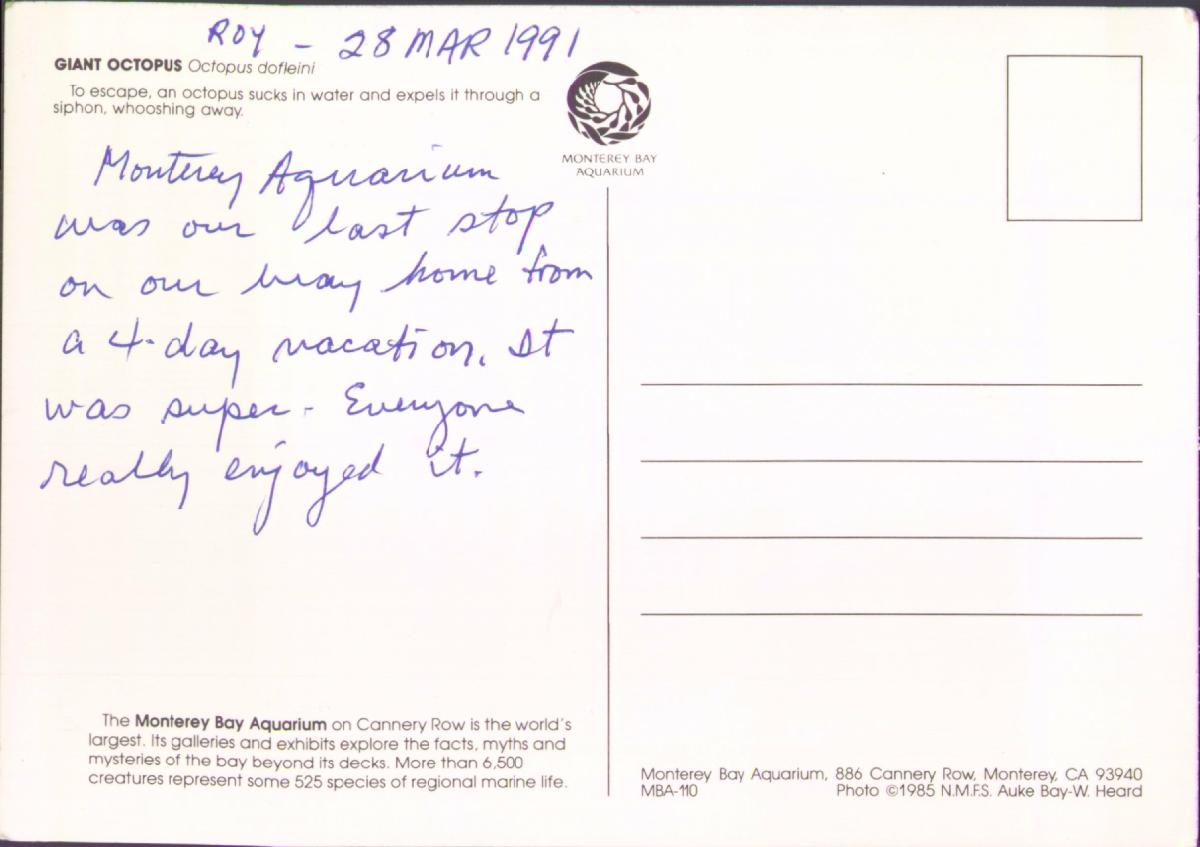 ROY - 28 MAR 1991
GIANT OCTOPUS Octopus dofleini
To escape, an octopus sucks in water and expels it through a
siphon, whooshing away.
MONTEREY BAY
AQUARIUM
Monterey Aquarium
was our last stop
on our way home from
a 4-day vacation. It
was super - Everyone
really enjoyed it.
The Monterey Bay Aquarium on Cannery Row is the world's
largest. Its galleries and exhibits explore the facts, myths and
mysteries of the bay beyond its decks. More than 6,500
creatures represent some 525 species of regional marine life.
Monterey Bay Aquarium, 886 Cannery Row, Monterey, CA 93940
MBA-110 Photo ©1985 N.M.F.S. Auke Bay-W. Heard